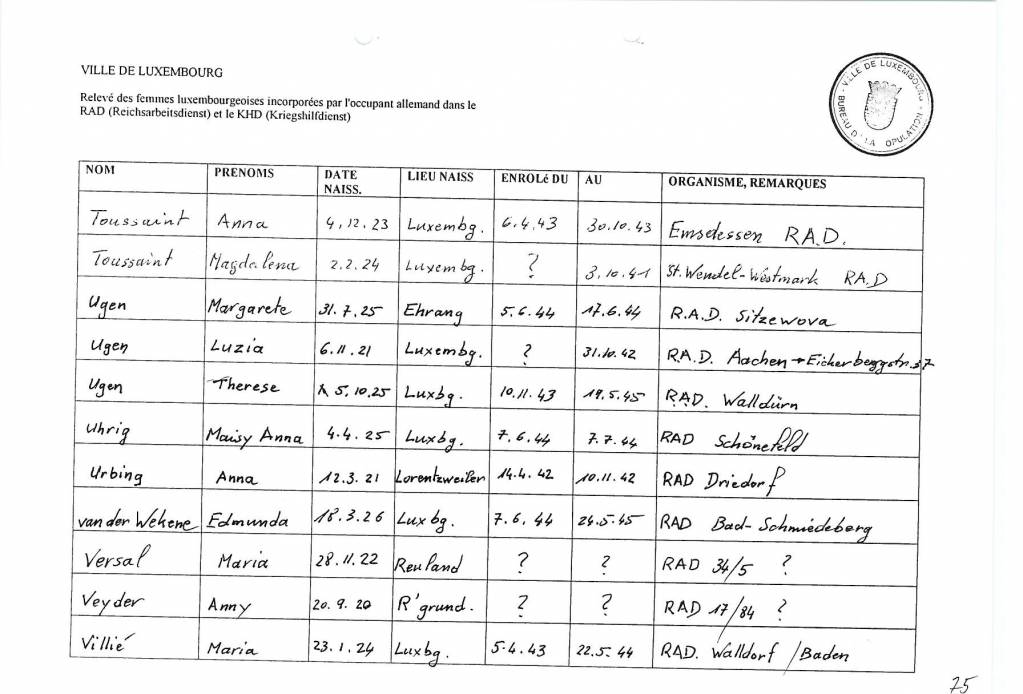 VILLE DE LUXEMBOURG
Relevé des femmes luxembourgeoises incorporées par l'occupant allemand dans le
RAD (Reichsarbeitsdienst) et le KHD (Kriegshilfdienst)
VILLE DE LUXEMBOURG - BUREAU D LA OPULATION -
NOM PRENOMS DATE NAISS. LIEU NAISS ENROLé DU AU ORGANISME, REMARQUES
Toussaint Anna 4.12.23 Luxembg. 6.4.43 30.10.43 Emsdessen R.A.D.
Toussaint Magdalena 2.2.24 Luxembg. ? 3.10.41 St. Wendel-Westmark RA.D
Ugen Margarete 31.7.25 Ehrang 5.6.44 17.6.44 R.A.D. Sitzewova
Ugen Luzia 6.11.21 Luxembg. ? 31.10.42 R.A.D. Aachen → Eicherbergstr. 37
Ugen Therese 5.10.25 Luxbg. 10.11.43 19.5.45 RAD. Walldürn
Uhrig Maisy Anna 4.4.25 Luxbg. 7.6.44 7.7.44 RAD Schönefeld
Urbing Anna 12.3.21 Lorentzweiler 14.4.42 10.11.42 RAD Driedorf
van der Wekene Edmunda 18.3.26 Luxbg. 7.6.44 24.5.45 RAD Bad-Schmiedeberg
Versal Maria 28.11.22 Reuland ? ? RAD 34/5 ?
Veyder Anny 20.9.20 R'grund. ? ? RAD 17/84 ?
Villié Maria 23.1.24 Luxbg. 5.4.43 22.5.44 RAD. Walldorf /Baden
75